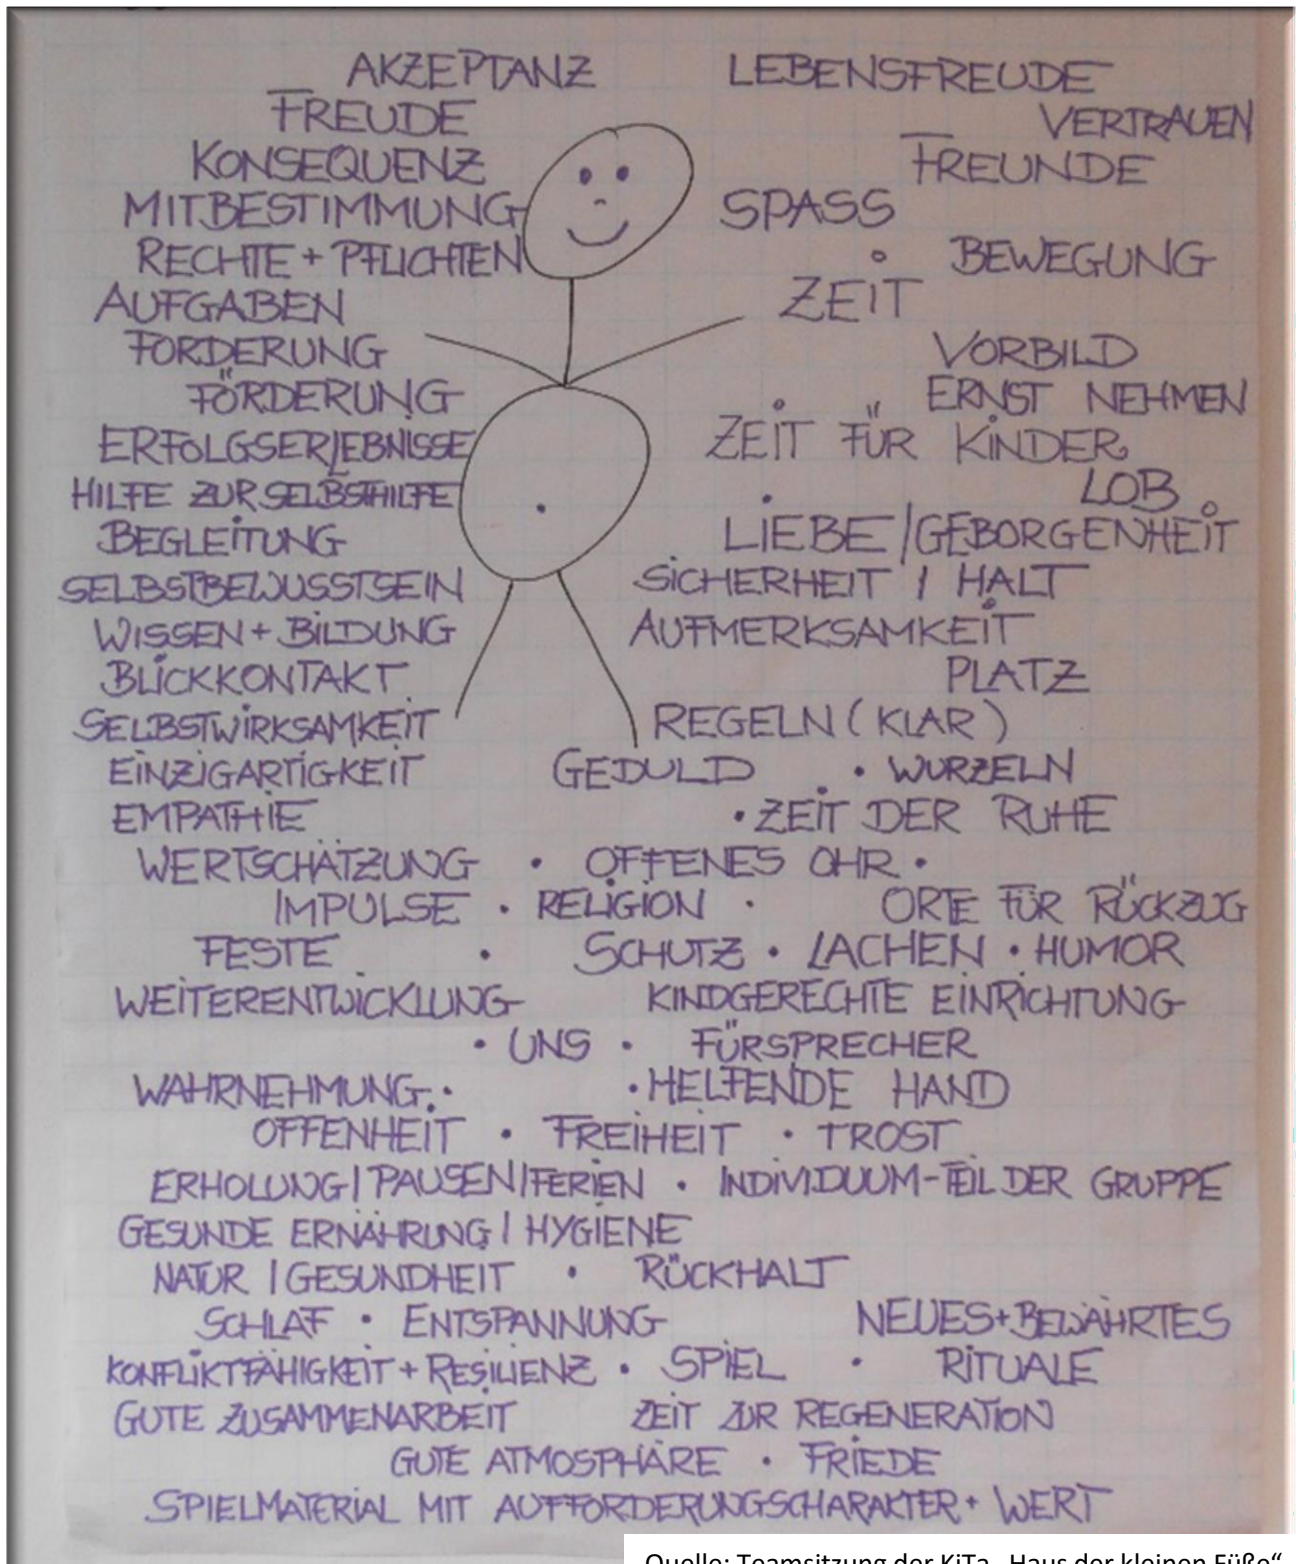 AKZEPTANZ LEBENSFREUDE
FREUDE VERTRAUEN
KONSEQUENZ FREUNDE
MITBESTIMMUNG SPASS
RECHTE + PFLICHTEN BEWEGUNG
AUFGABEN ZEIT
FORDERUNG VORBILD
FÖRDERUNG ERNST NEHMEN
ERFOLGSERLEBNISSE ZEIT FÜR KINDER
HILFE ZUR SELBSTHILFE LOB
BEGLEITUNG LIEBE / GEBORGENHEIT
SELBSTBEWUSSTSEIN SICHERHEIT / HALT
WISSEN + BILDUNG AUFMERKSAMKEIT
BLICKKONTAKT PLATZ
SELBSTWIRKSAMKEIT REGELN ( KLAR )
EINZIGARTIGKEIT GEDULD • WURZELN
EMPATHIE • ZEIT DER RUHE
WERTSCHÄTZUNG • OFFENES OHR •
IMPULSE • RELIGION • ORTE FÜR RÜCKZUG
FESTE • SCHUTZ • LACHEN • HUMOR
WEITERENTWICKLUNG KINDGERECHTE EINRICHTUNG
• UNS • FÜRSPRECHER
WAHRNEHMUNG • • HELFENDE HAND
OFFENHEIT • FREIHEIT • TROST
ERHOLUNG / PAUSEN / FERIEN • INDIVIDUUM - TEIL DER GRUPPE
GESUNDE ERNÄHRUNG / HYGIENE
NATUR / GESUNDHEIT • RÜCKHALT
SCHLAF • ENTSPANNUNG NEUES + BEWÄHRTES
KONFLIKTFÄHIGKEIT + RESILIENZ • SPIEL • RITUALE
GUTE ZUSAMMENARBEIT ZEIT ZUR REGENERATION
GUTE ATMOSPHÄRE • FRIEDE
SPIELMATERIAL MIT AUFFORDERUNGSCHARAKTER + WERT
Quelle: Teamsitzung der KiTa „Haus der kleinen Füße“